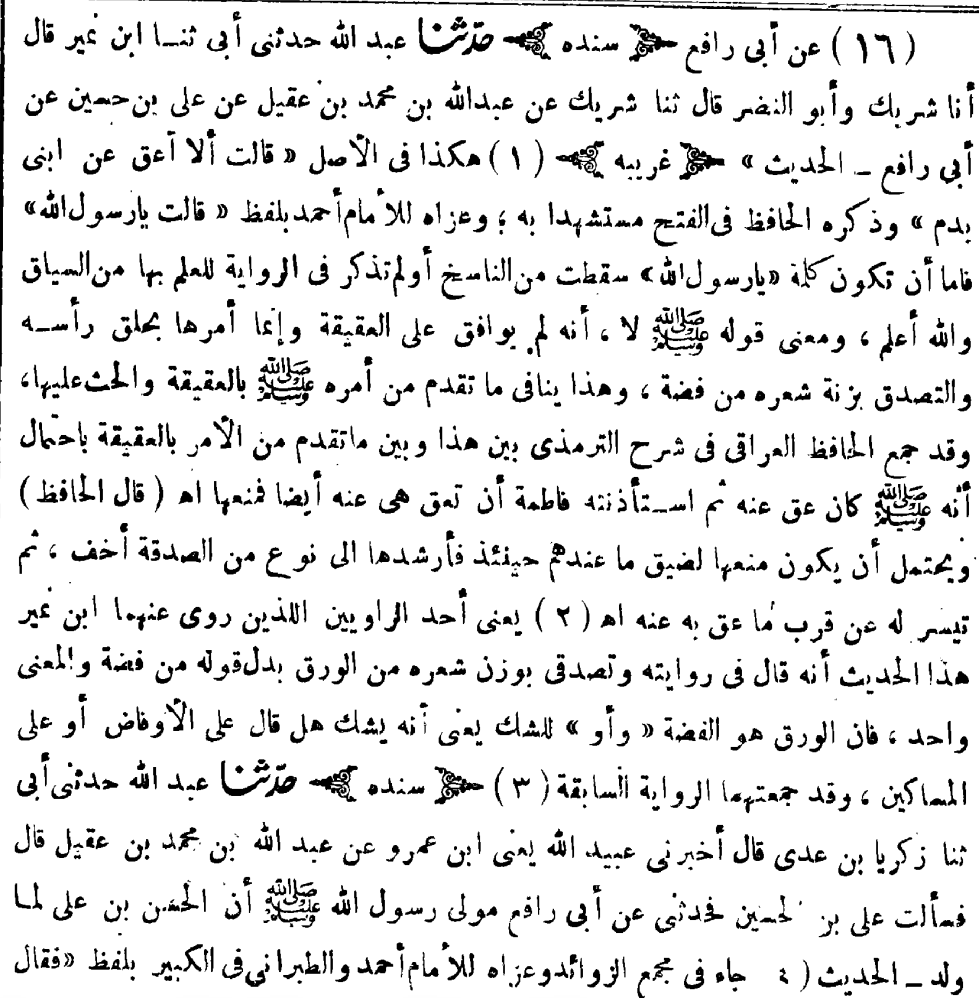 (١٦) عن أبى رافع ﴿ سنده ﴾ حدّثنا عبد الله حدثنى أبى ثنـا ابن نمير قال
أنا شريك وأبو النضر قال ثنا شريك عن عبدالله بن محمد بن عقيل عن على بن حسين عن
أبى رافع ــ الحديث » ﴿ غريبه ﴾ (١) هكذا فى الأصل « قالت ألا أعق عن ابنى
بدم » وذكره الحافظ فى الفتح مستشهدا به ؛ وعزاه للأمام أحمد بلفظ « قالت يارسول الله»
فاما أن تكون كلمة «يارسول الله» سقطت من الناسخ أولم تذكر فى الرواية للعلم بها من السياق
والله أعلم ، ومعنى قوله ﷺ لا ، أنه لم يوافق على العقيقة وإنما أمرها بحلق رأسـه
والتصدق بزنة شعره من فضة ، وهذا ينافى ما تقدم من أمره ﷺ بالعقيقة والحث عليها،
وقد جمع الحافظ العراقى فى شرح الترمذى بين هذا وبين ماتقدم من الأمر بالعقيقة باحتمال
أنه ﷺ كان عق عنه ثم اسـتأذنته فاطمة أن تعق هى عنه أيضا فمنعها اه ( قال الحافظ )
ويحتمل أن يكون منعها لضيق ما عندهم حينئذ فأرشدها الى نوع من الصدقة أخف ، ثم
تيسر له عن قرب ما عق به عنه اه (٢) يعنى أحد الراويين اللذين روى عنهما ابن نمير
هذا الحديث أنه قال فى روايته وتصدقى بوزن شعره من الورق بدل قوله من فضة والمعنى
واحد ، فان الورق هو الفضة « وأو » للشك يعنى أنه يشك هل قال على الأوفاض أو على
المساكين ، وقد جمعتهما الرواية السابقة (٣) ﴿ سنده ﴾ حدّثنا عبد الله حدثنى أبى
ثنا زكريا بن عدى قال أخبرنى عبيد الله يعنى ابن عمرو عن عبد الله بن محمد بن عقيل قال
فسألت على بن الحسين فحدثنى عن أبى رافع مولى رسول الله ﷺ أن الحسن بن على لمـا
ولد ــ الحديث (٤ جاء فى مجمع الزوائد وعزاه للأمام أحمد والطبرانى فى الكبير بلفظ «فقال